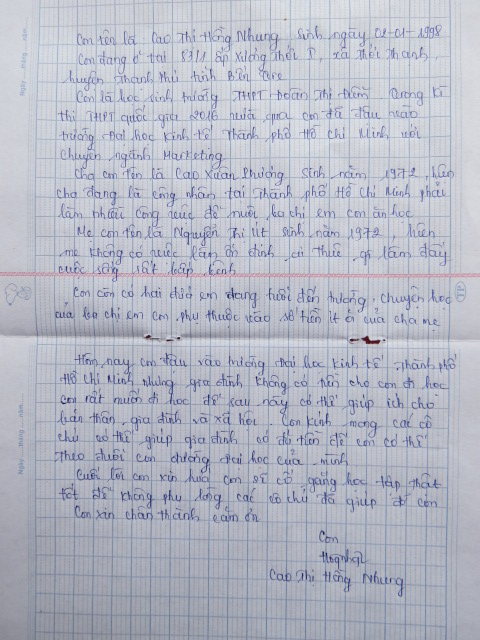 Con tên là Cao Thị Hồng Nhung sinh ngày 01-01-1998
Con đang ở tại 83/1 ấp Xương Thới I, xã Thới Thạnh,
huyện Thạnh Phú tỉnh Bến Tre
Con là học sinh trường THPT Đoàn Thị Điểm. Trong kì
thi THPT quốc gia 2016 vừa qua con đã đậu vào
trường Đại học Kinh tế Thành phố Hồ Chí Minh với
chuyên ngành Marketing.
Cha con tên là Cao Xuân Phương sinh năm 1972, hiện
cha đang là công nhân tại Thành phố Hồ Chí Minh phải
làm nhiều công việc để nuôi ba chị em con ăn học
Mẹ con tên là Nguyễn Thị Út sinh năm 1972, hiện
mẹ không có việc làm ổn định, ai thuê gì làm đấy
cuộc sống rất bấp bênh
Con còn có hai đứa em đang tuổi đến trường, chuyện học
của ba chị em con phụ thuộc vào số tiền ít ỏi của cha mẹ
Hôm nay con đậu vào trường Đại học Kinh tế Thành phố
Hồ Chí Minh nhưng gia đình không có tiền cho con đi học
con rất muốn đi học để sau này có thể giúp ích cho
bản thân, gia đình và xã hội. Con kính mong các cô
chú có thể giúp gia đình có đủ tiền để con có thể
theo đuổi con đường đại học của mình
Cuối lời con xin hứa con sẽ cố gắng học tập thật
tốt để không phụ lòng các cô chú đã giúp đỡ con
Con xin chân thành cảm ơn
Con
Cao Thị Hồng Nhung